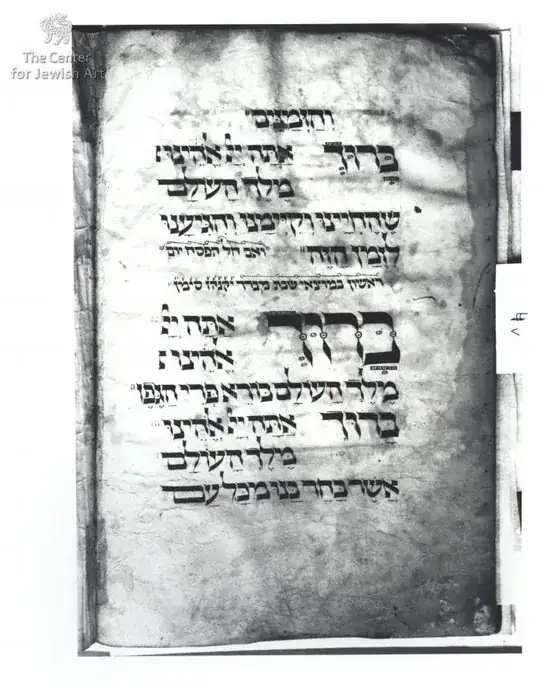 The Center
for Jewish Art
וְהַזְּמַנִּים
בָּרוּךְ אַתָּה יְיָ אֱלֹהֵינוּ
מֶלֶךְ הָעוֹלָם
שֶׁהֶחֱיָינוּ וְקִיְּימָנוּ וְהִגִּיעָנוּ
לַזְּמַן הַזֶּה ואם חל הפסח יום
ראשון במוצאי שבת מברך יקנהז סימן
בָּרוּךְ אַתָּה יְיָ
אֱלֹהֵינוּ
מֶלֶךְ הָעוֹלָם בּוֹרֵא פְּרִי הַגֶּפֶן
בָּרוּךְ אַתָּה יְיָ אֱלֹהֵינוּ
מֶלֶךְ הָעוֹלָם
אֲשֶׁר בָּחַר בָּנוּ מִכָּל עַם
4v